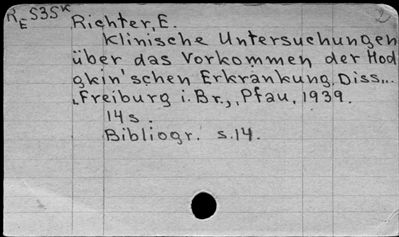 RE S3SK
Richter, E.
Klinische Untersuchungen
über das Vorkommen der Hod
gkin'schen Erkrankung. Diss...
Freiburg i. Br., Pfau, 1939.
14 s.
Bibliogr. s.14.